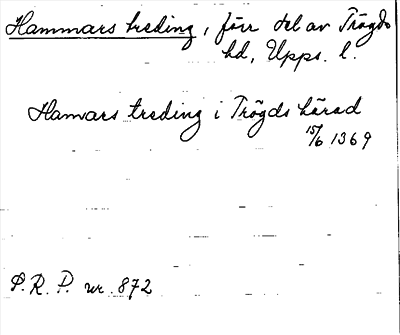 Hammars treding, förr del av Trögds
hd, Upps. l.
Hamars treding i Trögds härad
15/6 1369
P.R.P. nr. 872